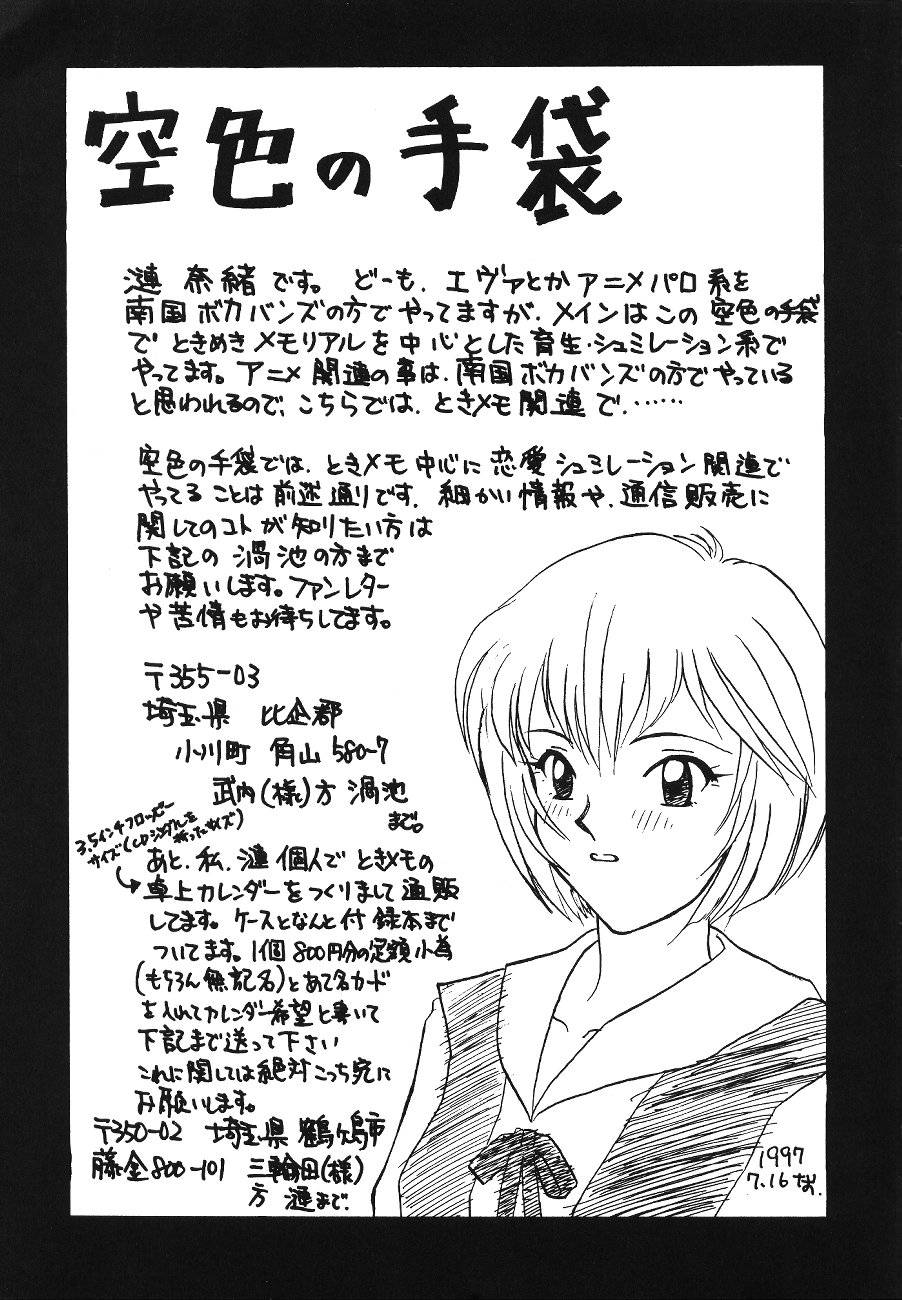 空色の手袋
漣 奈緒です。 どーも、エヴァとかアニメパロ系を
南国ボカバンズの方でやってますが、メインはこの 空色の手袋
で ときめきメモリアルを中心とした育生・シュミレーション系で
やってます。アニメ関連の事は、南国ボカバンズの方でやっている
と思われるので、こちらでは、ときメモ関連で、……
空色の手袋では、ときメモ中心に恋愛シュミレーション関連で
やってることは前述通りです。細かい情報や、通信販売に
関してのコトが知りたい方は
下記の 渦池の方まで
お願いします。ファンレター
や苦情もお待ちしてます。
〒355-03
埼玉県 比企郡
小川町 角山 580-7
武内(様)方 渦池
まで。
3.5インチフロッピー
サイズ(CDシングルを
折ったサイズ)
あと、私、漣個人で ときメモの
卓上カレンダーをつくりまして通販
してます。ケースとなんと付録本まで
ついてます。1個800円分の定額小為
(もちろん無記名)とあて名カード
を入れてカレンダー希望と書いて
下記まで送って下さい
これに関しては絶対こっち宛に
お願いします。
〒350-02 埼玉県 鶴ヶ島市
藤金800-101 三輪田(様)
方 漣まで.
1997
7.16 なお.